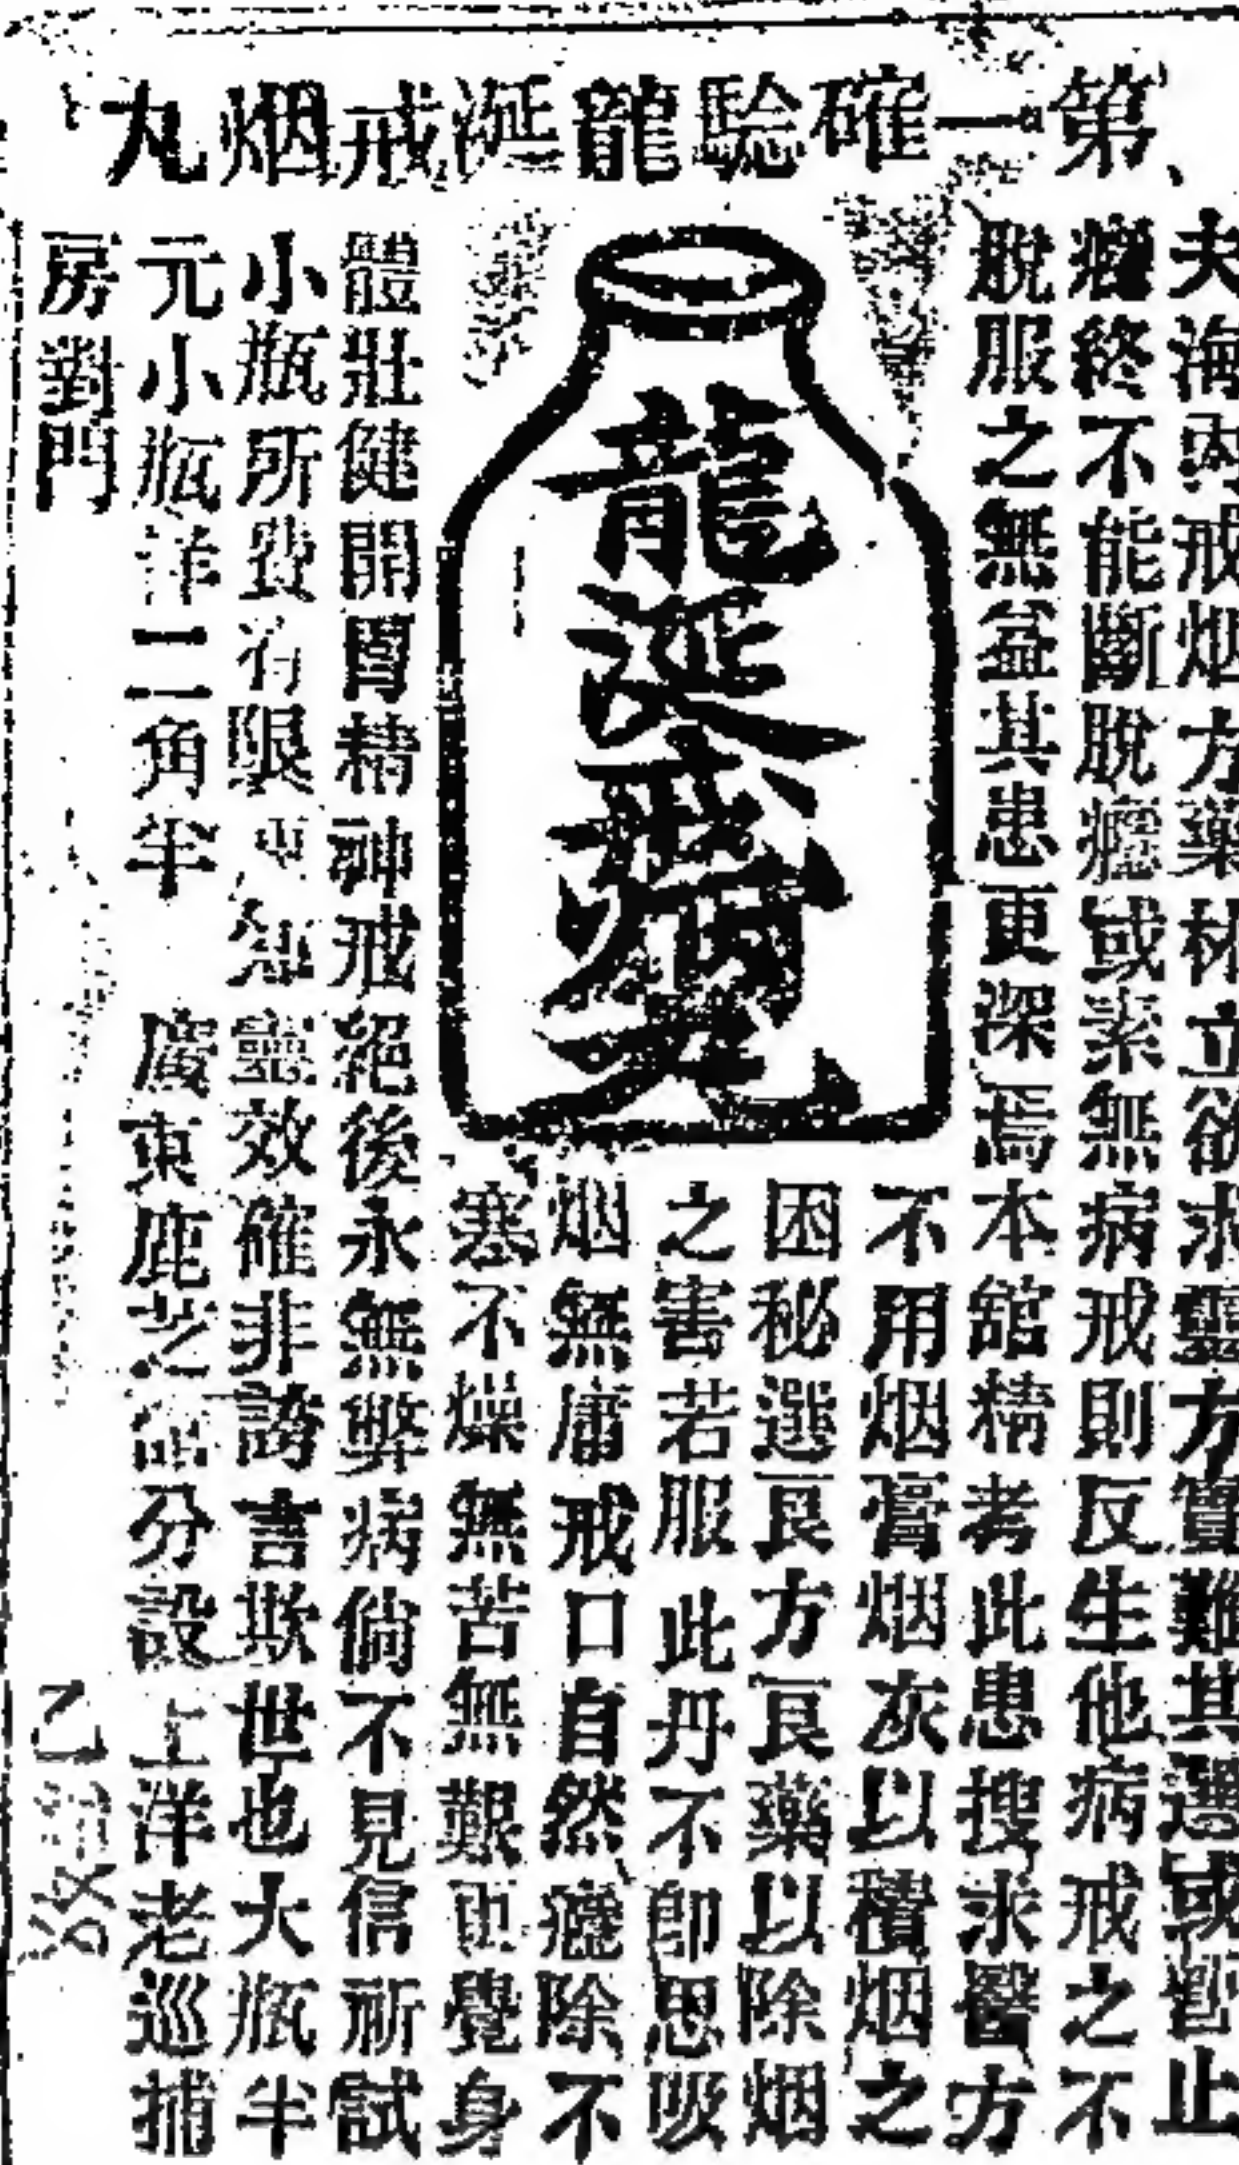 第一確騐龍涎戒烟丸
夫海內戒烟方藥林立欲求靈方實難其選或暫止
癮終不能斷脫癮或素無病戒則反生他病戒之不
脫服之無益其患更深焉本舘精考此患搜求醫方
不用烟膏烟灰以積烟之
困秘選良方良藥以除烟
之害若服此丹不卽思吸
烟無庸戒口自然癮除不
塞不燥無苦無艱更覺身
龍涎戒烟丸
體壯健開胃精神戒絕後永無弊病倘不見信祈試
小瓶所費有限更知靈效確非誇言欺世也大瓶半
元小瓶洋二角半 廣東鹿芝館分設上洋老巡捕
房對門